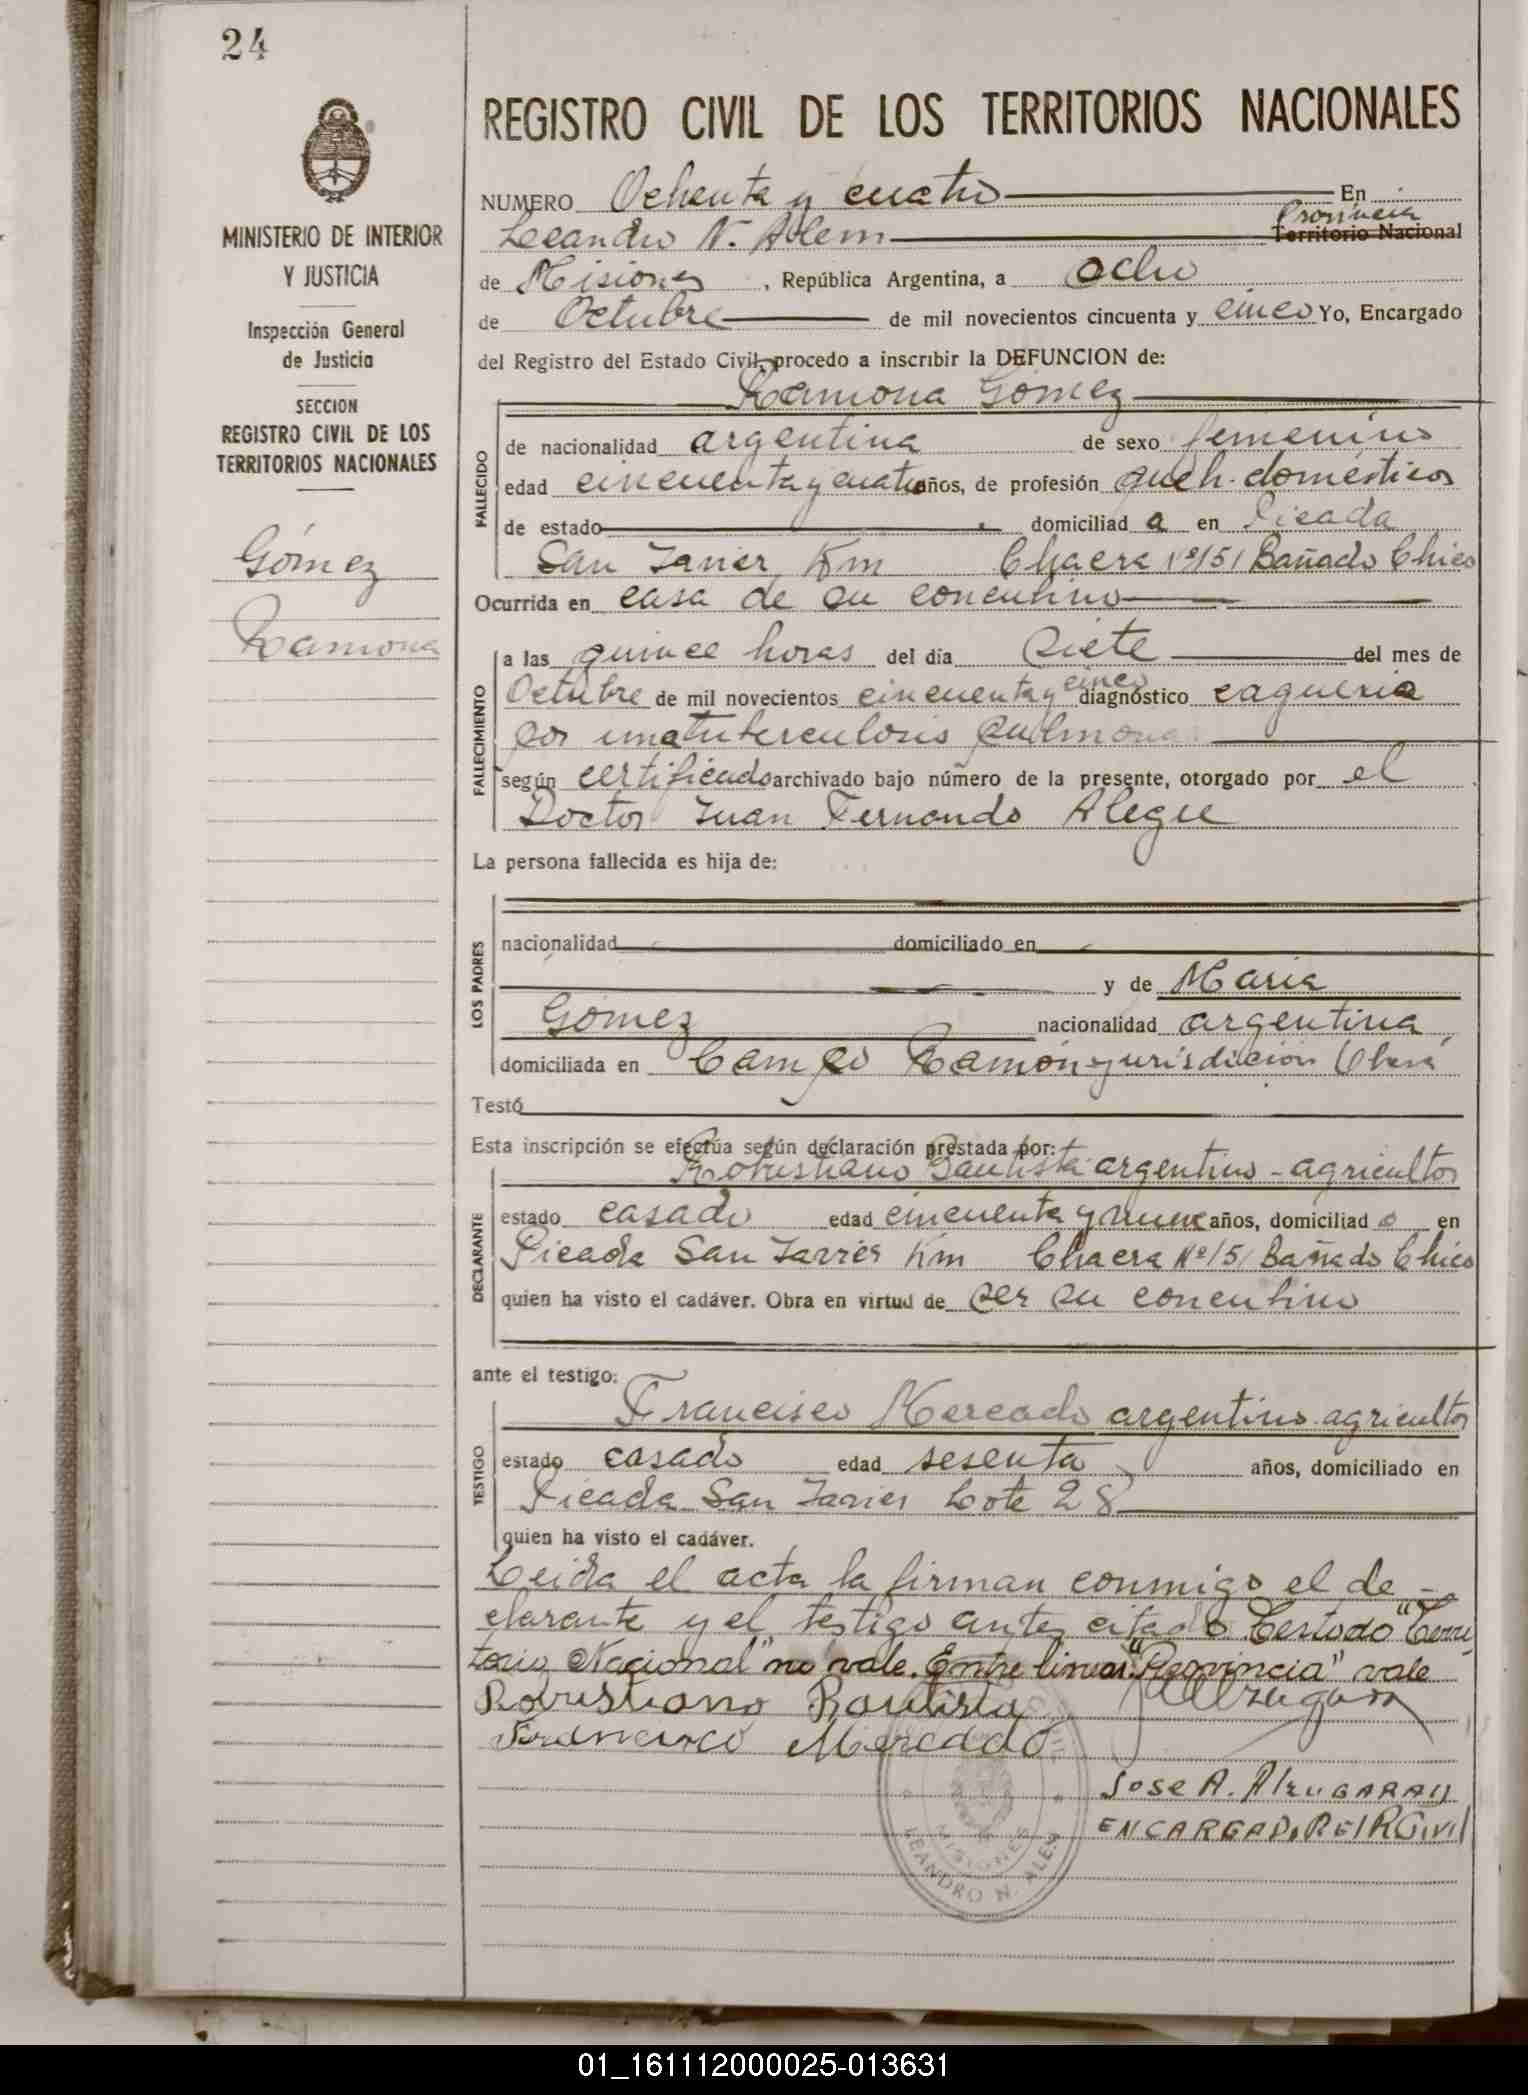 24
REGISTRO CIVIL DE LOS TERRITORIOS NACIONALES
MINISTERIO DE INTERIOR
Y JUSTICIA
Inspección General
de Justicia
SECCION
REGISTRO CIVIL DE LOS
TERRITORIOS NACIONALES
Gómez
Ramona
NUMERO Ochenta y cuatro En
Provincia
Leandro N. Alem Territorio Nacional
de Misiones, República Argentina, a ocho
de Octubre de mil novecientos cincuenta y cinco Yo, Encargado
del Registro del Estado Civil, procedo a inscribir la DEFUNCION de:
Ramona Gómez
FALLECIDO
de nacionalidad argentina de sexo femenino
edad cincuenta y cuatro años, de profesión queh. domésticos
de estado domiciliad a en Picada
San Javier Km Chacra Nº 151 Bañado Chico
Ocurrida en casa de su concubino
FALLECIMIENTO
a las quince horas del día siete del mes de
cinco
Octubre de mil novecientos cincuenta y diagnóstico caquexia
por una tuberculosis pulmonar
según certificado archivado bajo número de la presente, otorgado por el
Doctor Juan Fernando Alegre
La persona fallecida es hija de:
LOS PADRES
nacionalidad domiciliado en
y de Maria
Gómez nacionalidad argentina
domiciliada en Campo Ramón jurisdicion Oberá
Testó
Esta inscripción se efectúa según declaración prestada por:
Robustiano Bautista argentino - agricultor
DECLARANTE
estado casado edad cincuenta y nueve años, domiciliad o en
Picada San Javier Km Chacra Nº 151 Bañado Chico
quien ha visto el cadáver. Obra en virtud de ser su concubino
ante el testigo:
Francisco Mercado argentino agricultor
TESTIGO
estado casado edad sesenta años, domiciliado en
Picada San Javier Lote 28
quien ha visto el cadáver.
Leida el acta la firman conmigo el de-
clarante y el testigo antes citado Testado "Terri
torio Nacional" no vale. Entre lineas: "Provincia" vale
Robustiano Bautista
Francisco Mercado
JOSE A. AlzUGARAY
ENCARGADO DEl R CiVil
MISIONES
LEANDRO N. ALEM
01_161112000025-013631